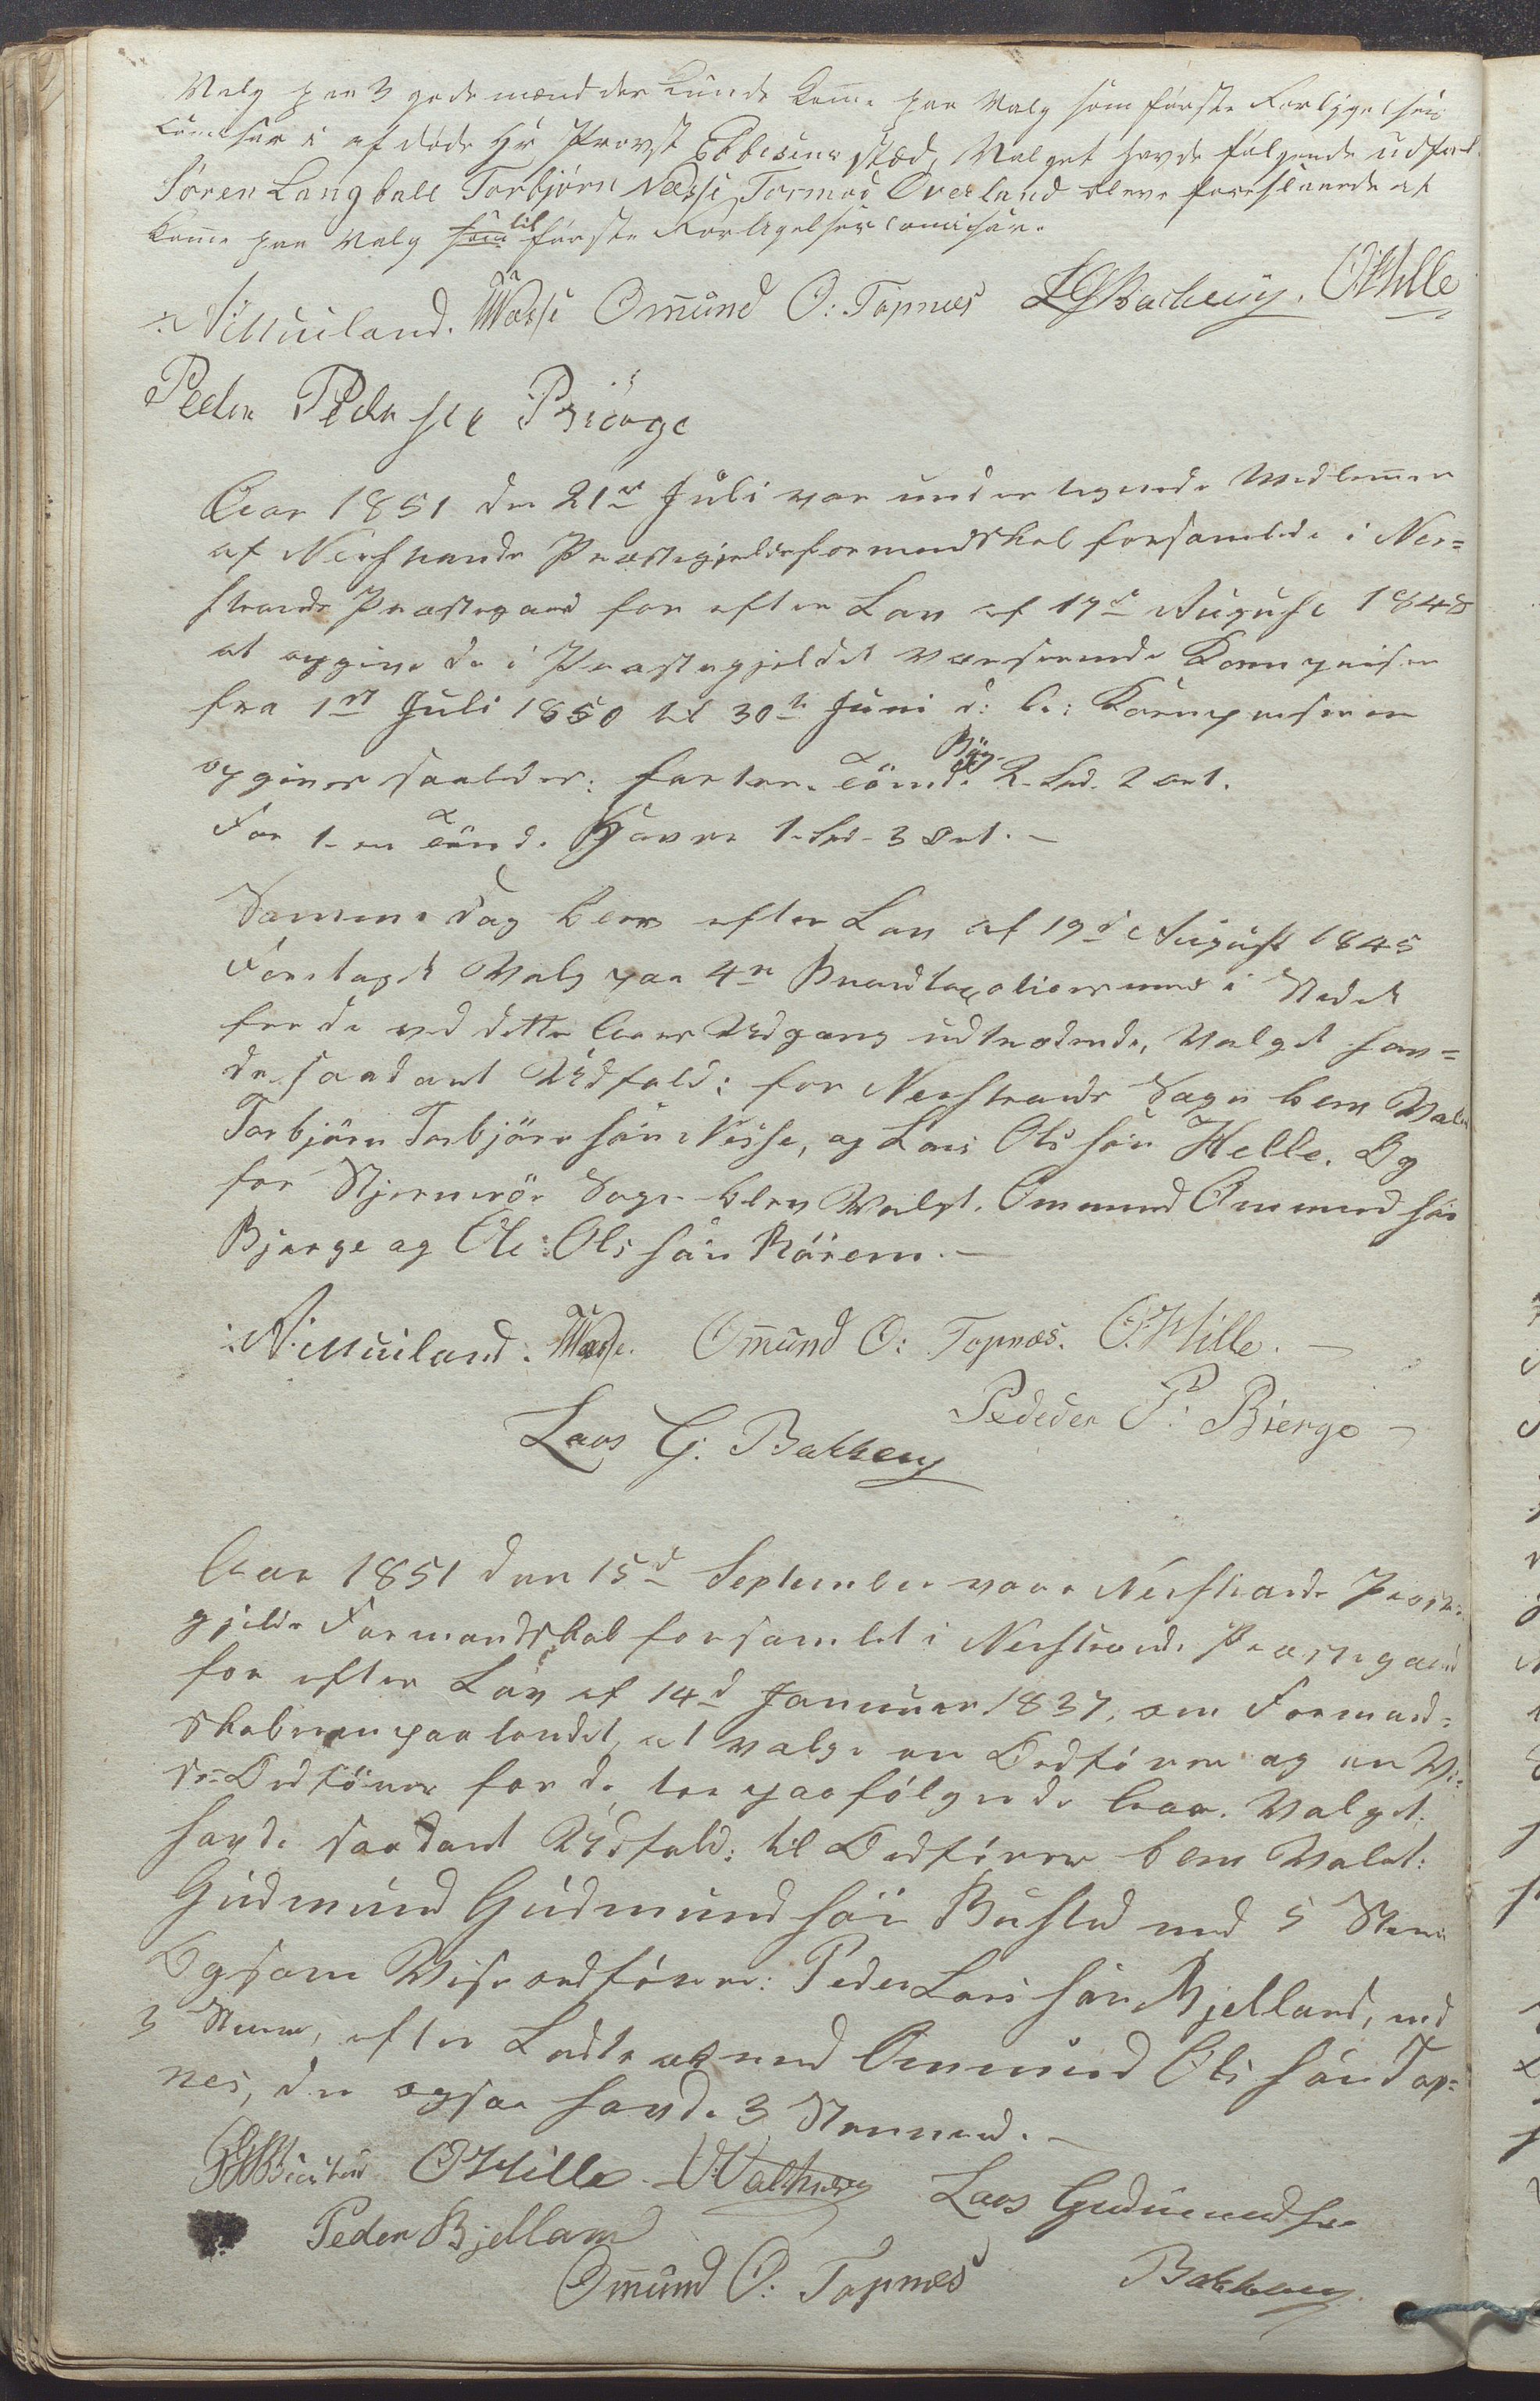 Valg paa 3 gode mænd der Kunde Komme paa Valg som første Forligelses
Comisær i afdøde Hr Provst Ebbesens stæd, Valget havde følgende udfald.
Søren Langballe Torbjørn Nesse, Tormod Overland bleve foreslaaede at
Komme paa Valg som til første Forligelsescomisær.
Omund O: Tøpnæs LGBackevig. OHille
Peder Pederse Biørge
Aar 1851 den 21de Juli var undertegnede Medlemer
af Nerstrands Præstegjelds formandskab forsamlede i Ner=
strands Præstegaard for efter Lov af 17de August 1848
at opgive de i Præstegjeldet værserende Kornpriser
fra 1ste Juli 1850 til 30te Juni d: A: Kornpriserne
opgives saaledes: for 1 en Tønde Byg 2 Spd. 2 ort.
For 1 en Tønd. Havre 1 Spd. 3 Ort. —
Samme Dag blev efter Lov af 19de August 1845
Foretaget Valg paa 4re Brandtaxationsmend i Stedet
for de ved dette Aars Udgang udtrædende, Valget hav=
de saadant Udfald: for Nerstrands Sogn blev Valgt
Torbjørn Torbjørnsøn Nesse, og Lars Olssøn Helle. Og
for Stjernerøe Sogn blev Valgt. Ommund Ommundsøn
Bjerge og Ole Olssøn Børem. —
Omund O: Tøpnæs. O.Hille. —
Pededer P: Bierge —
Lars G: Bakkevig
Aar 1851 den 15de September var Nerstrands Præste=
gjelds Formandskab forsamlet i Nerstrands Præstegaard
for efter Lov af 14de Januar 1837, om Formand=
skaberne paa landet, at valge en Ordfører og en Vi=
se Ordfører for de tre paafølgende Aar. Valget.
havde saadant Udfald: til Ordfører blev Valgt:
Gudmund Gudmundsøn Busted med 5 Stemer
Og som Viseordfører: Peder Larssøn Bjelland, med
3 Stemer, efter Lodtrækned Ommund Olssøn Tøp=
nes, der ogsaa havde 3 Stemmer. —
OHille Lars Gudmundsen
Peder Bjelland
Omund O: Tøpnæs Bakkevig